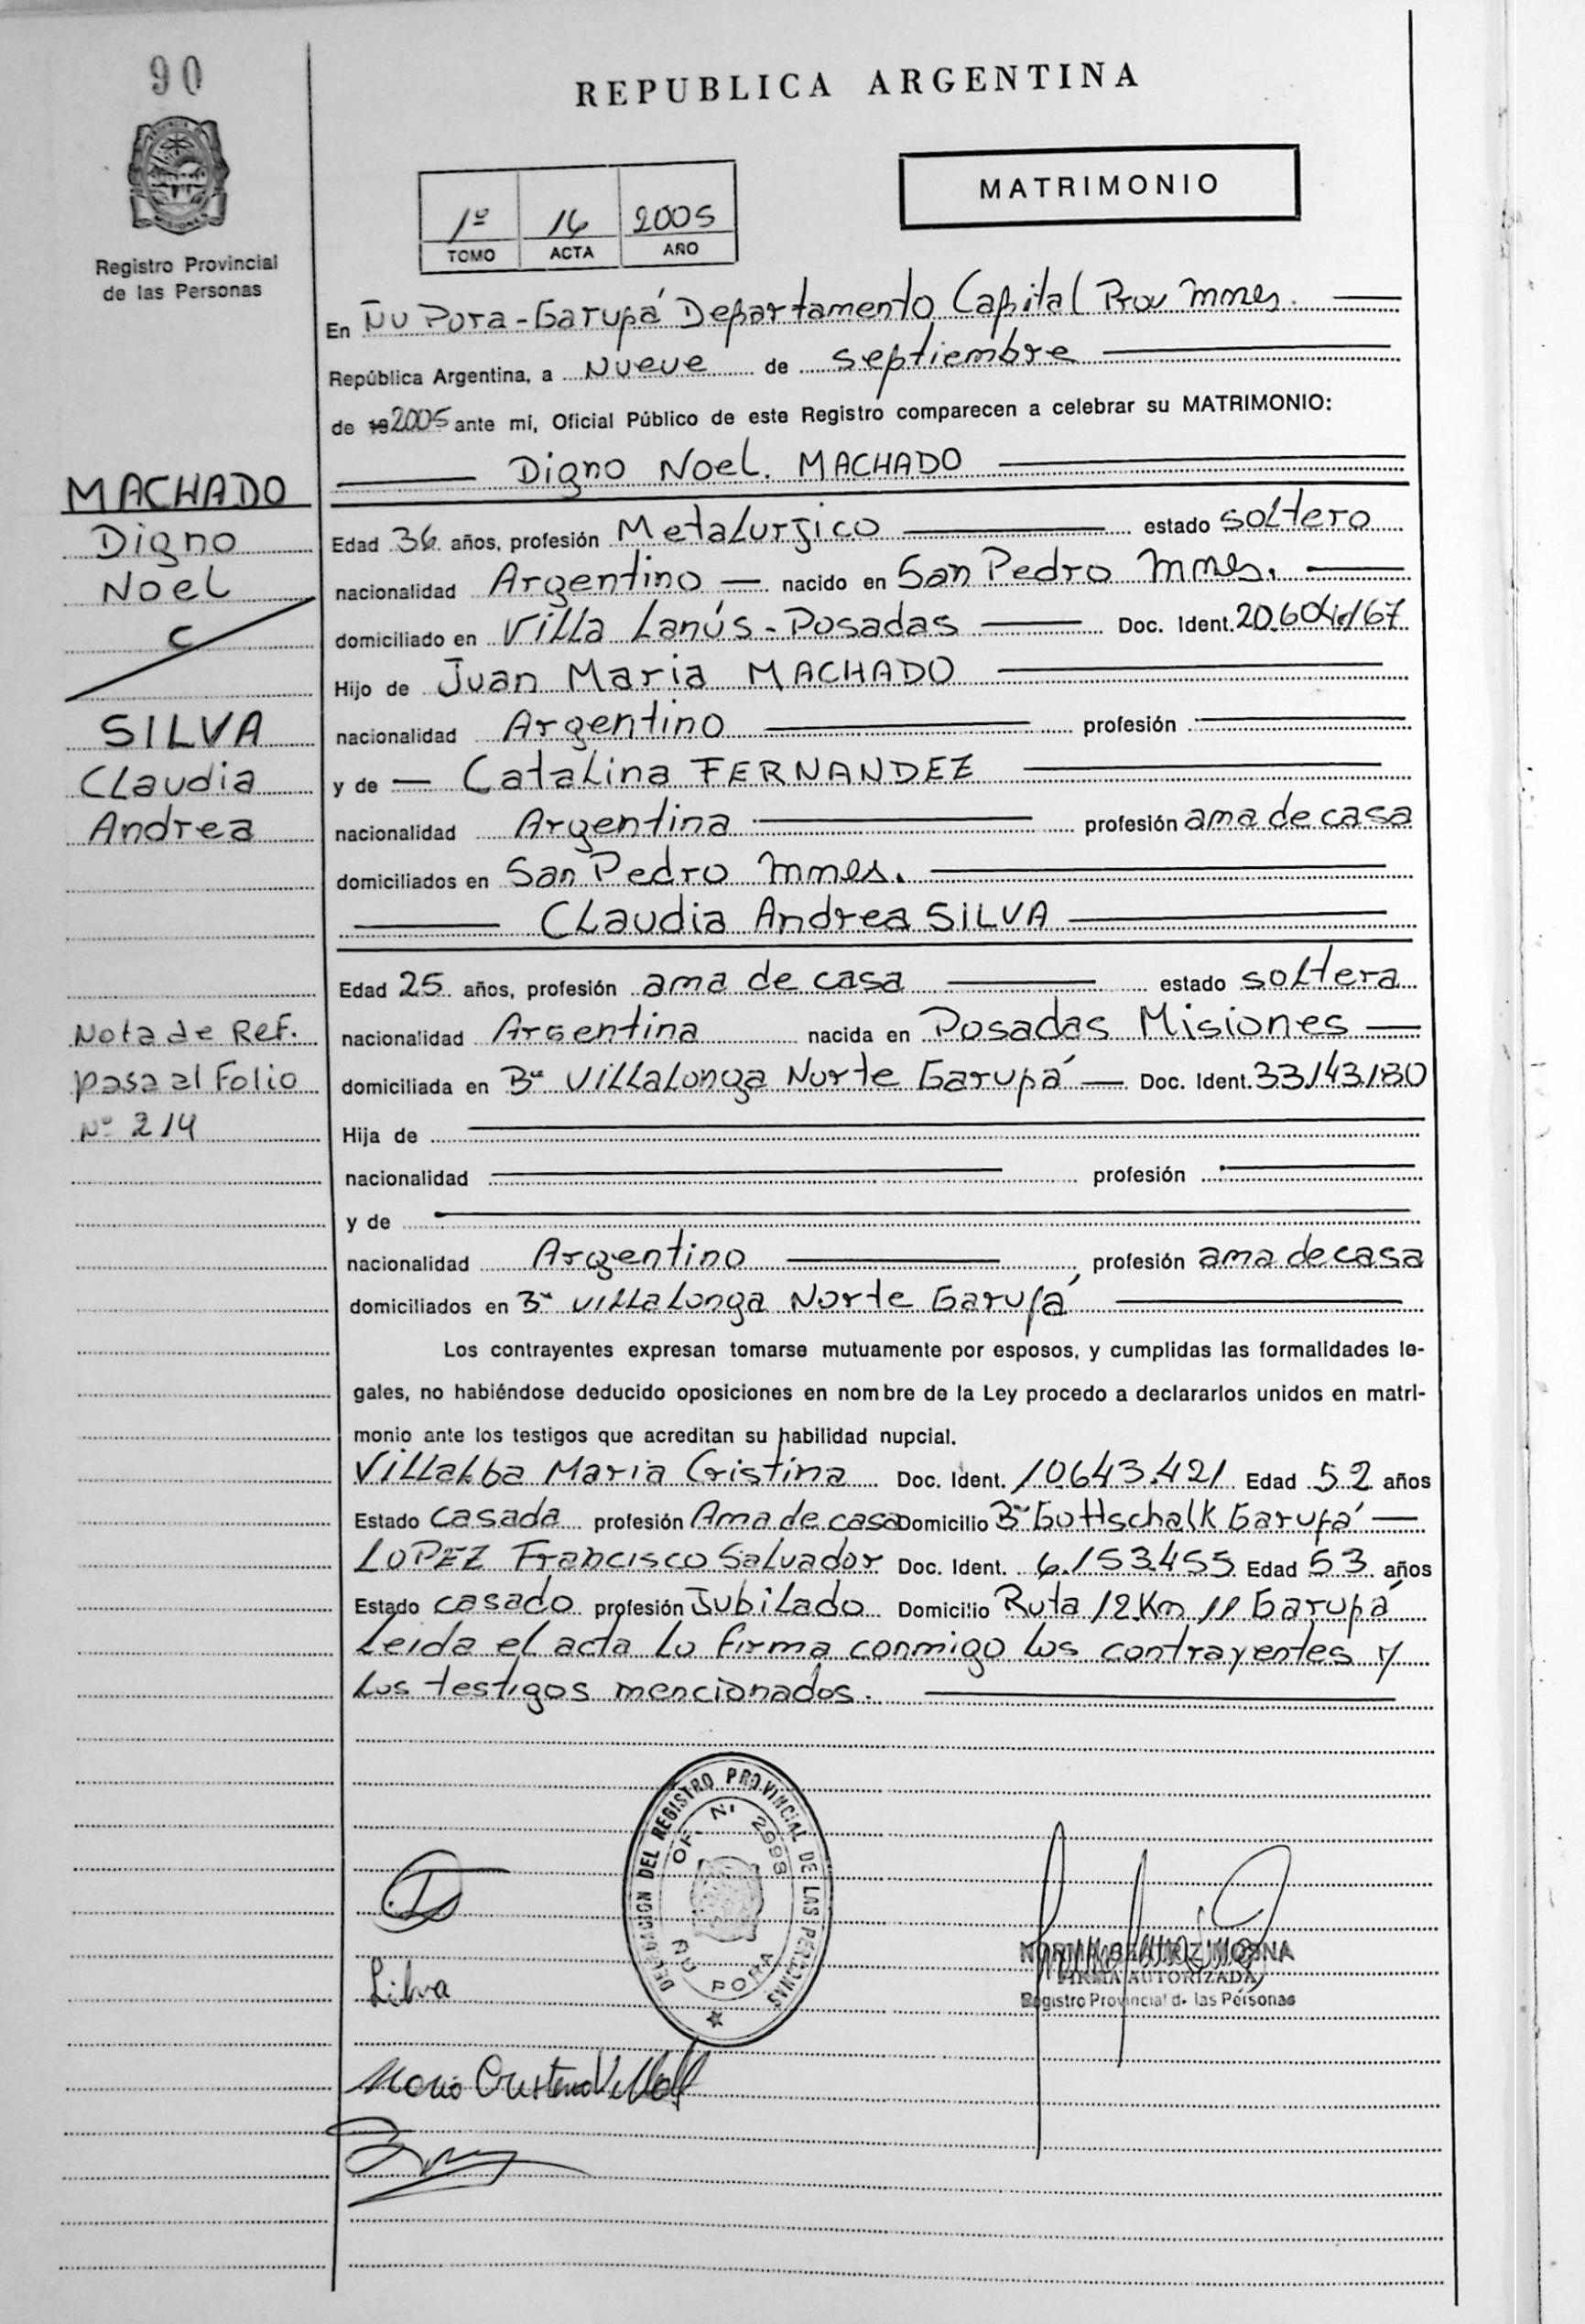 90
REPUBLICA ARGENTINA
MATRIMONIO
1º 16 2005
TOMO ACTA AÑO
Registro Provincial
de las Personas
En ÑU Pora - Garupá Departamento Capital Prov Mnes.
República Argentina, a Nueve de septiembre
de 19 2005 ante mí, Oficial Público de este Registro comparecen a celebrar su MATRIMONIO:
Digno Noel. MACHADO
MACHADO
Digno
Noel
c
SILVA
Claudia
Andrea
Nota de Ref.
pasa al Folio
Nº 214
Edad 36 años, profesión Metalurjico estado soltero
nacionalidad Argentino nacido en San Pedro Mnes.
domiciliado en Villa Lanús - Posadas Doc. Ident.
Hijo de Juan Maria MACHADO
nacionalidad Argentino profesión
y de Catalina FERNANDEZ
nacionalidad Argentina profesión ama de casa
domiciliados en San Pedro Mnes.
Claudia Andrea SILVA
Edad 25 años, profesión ama de casa estado soltera
nacionalidad Argentina nacida en Posadas Misiones
domiciliada en Bº Villalonga Norte Garupá Doc. Ident.
Hija de
nacionalidad profesión
y de
nacionalidad Argentino profesión ama de casa
domiciliados en Bº Villalonga Norte Garupá
Los contrayentes expresan tomarse mutuamente por esposos, y cumplidas las formalidades le-
gales, no habiéndose deducido oposiciones en nombre de la Ley procedo a declararlos unidos en matri-
monio ante los testigos que acreditan su habilidad nupcial.
Villalba Maria Cristina Doc. Ident. 10.643.421 Edad 52 años
Estado casada profesión Ama de casa Domicilio Bº Gottschalk Garupá
LOPEZ Francisco Salvador Doc. Ident. 6.153.455 Edad 53 años
Estado casado profesión Jubilado Domicilio Ruta 12 Km 11 Garupá
Leida el acta lo firma conmigo los contrayentes y
los testigos mencionados.
DELEGACION DEL REGISTRO PROVINCIAL DE LAS PERSONAS
OF. Nº 2998
ÑU PORA
Silva
NORMA BEATRIZ MOSNA
FIRMA AUTORIZADA
Registro Provincial de las Personas
Maria Cristina Villalba